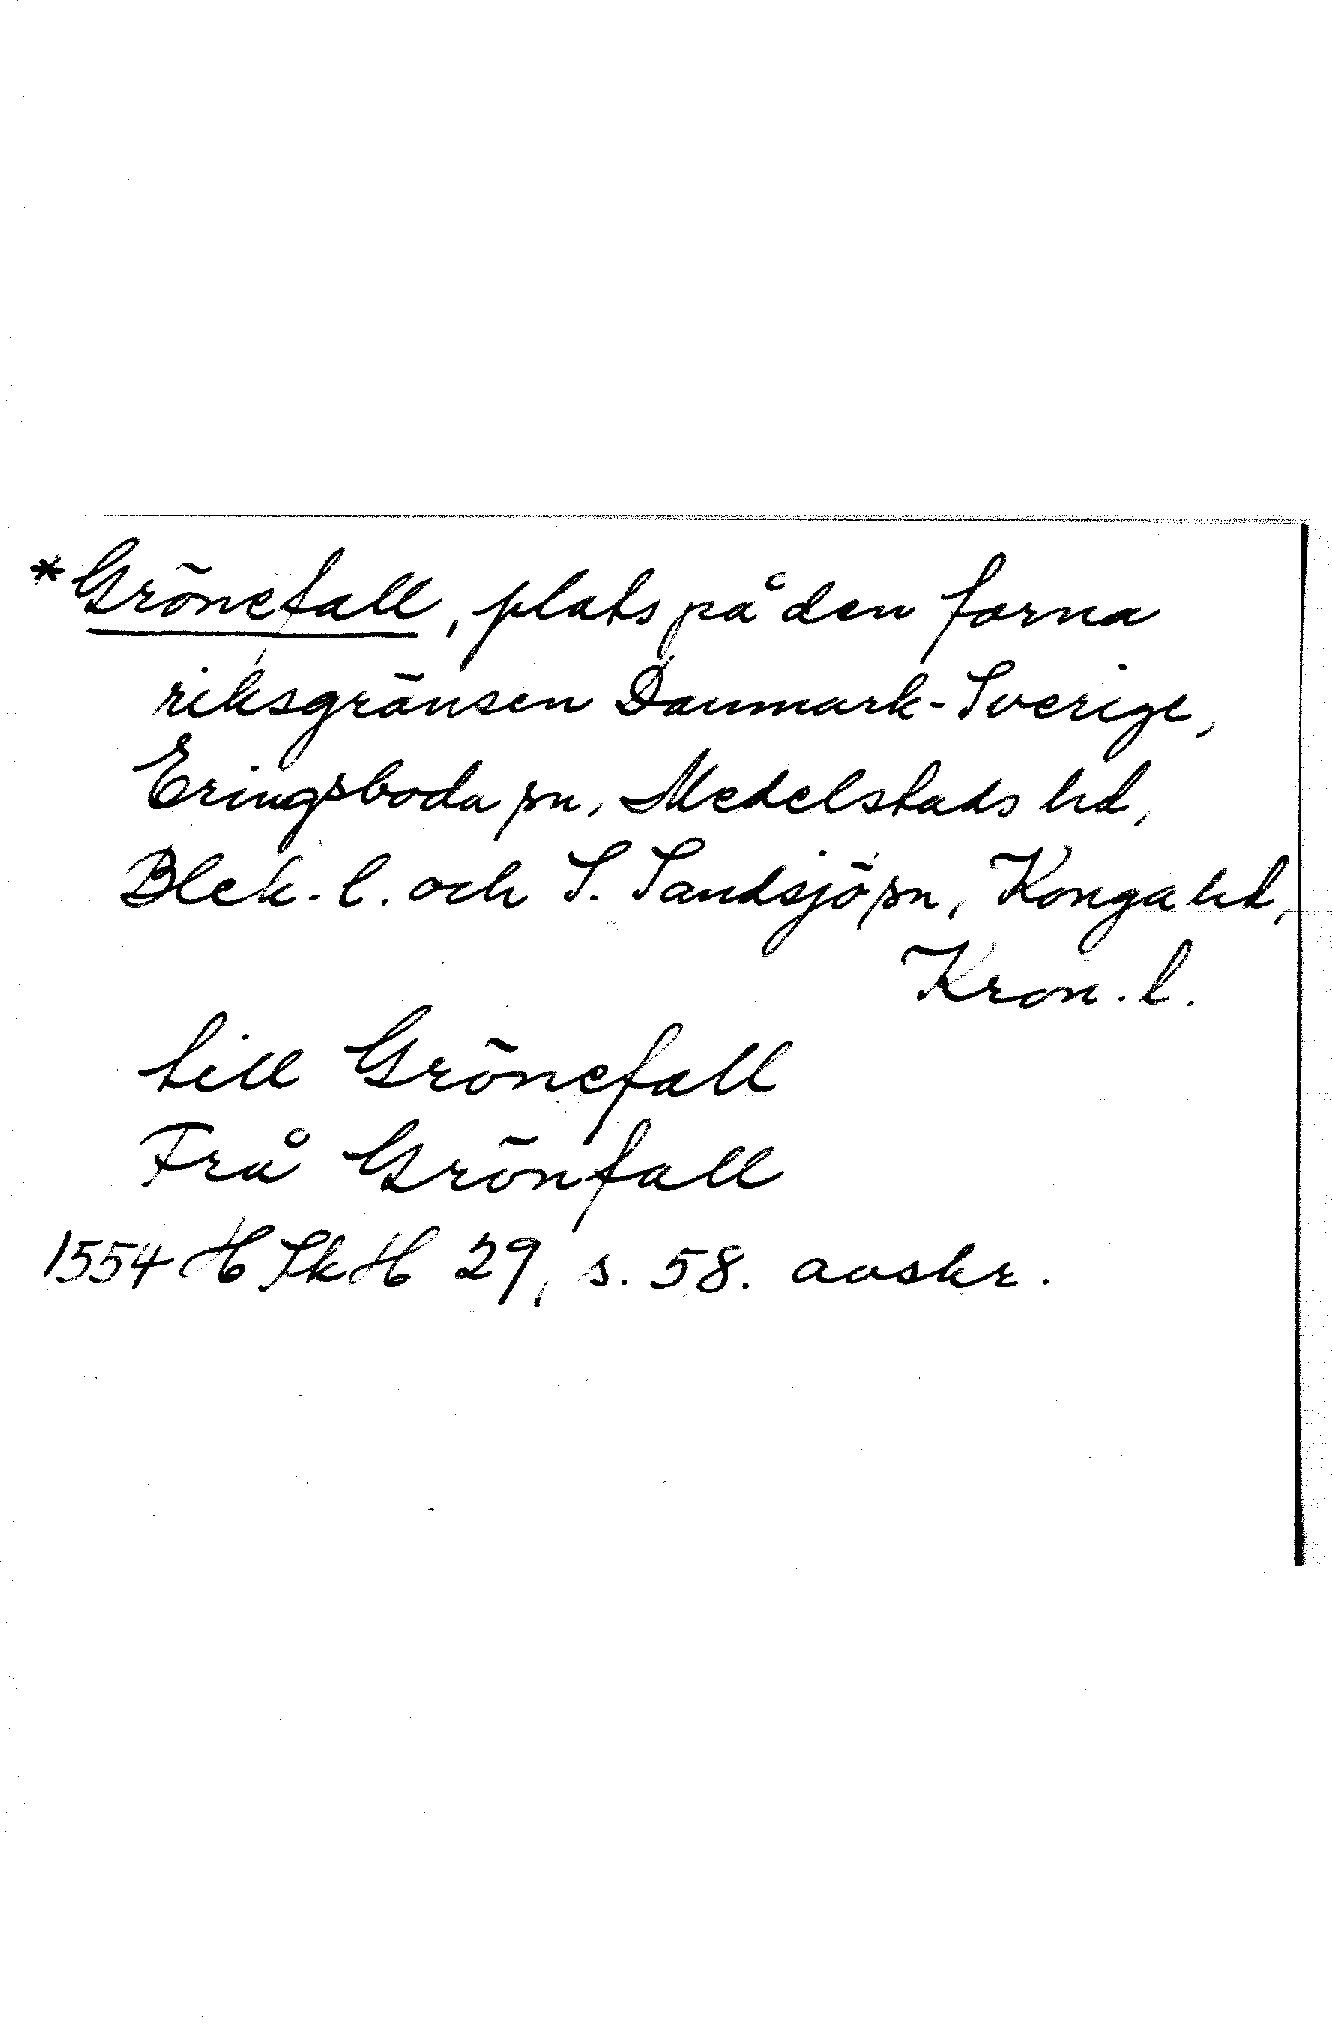 *Grönefall, plats på den forna
riksgränsen Danmark-Sverige,
Eringsboda sn, Medelstads hd,
Blek. l. och S. Sandsjö sn, Konga hd,
Kron. l.
till Grönefall
Frå Grönfall
1554 HSkH 29, s. 58. avskr.